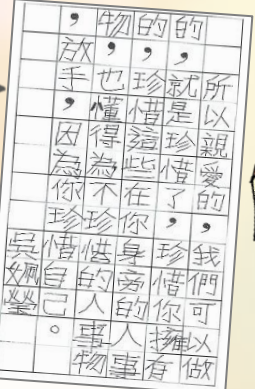 所以親愛的，我們可以做
的，就是珍惜了，珍惜你擁有
的，珍惜這些在你身旁的人事
物，也懂得為不珍惜的人事物
，放手，因為你珍惜自己。
吳姵瑩